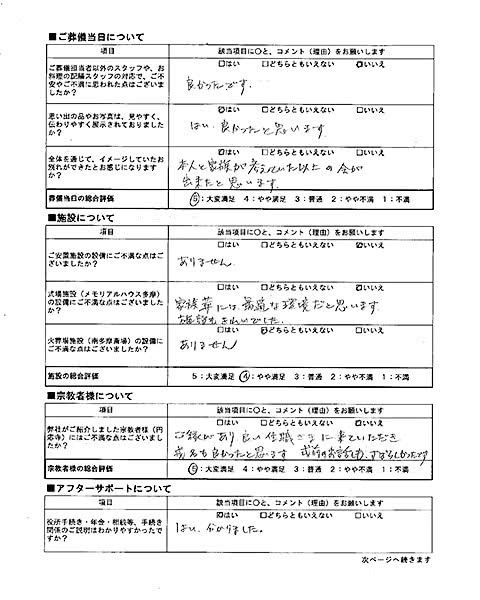 ■ご葬儀当日について
項目 該当項目に○と、コメント（理由）をお願いします
ご葬儀担当者以外のスタッフや、お
料理の配膳スタッフの対応で、ご不
安やご不満に思われた点はござい
ましたか？
□はい □どちらともいえない ☑いいえ
良かったです。
思い出の品やお写真は、見やすく、
伝わりやすく展示されておりました
か？
☑はい □どちらともいえない □いいえ
はい、良かったと思います
全体を通じて、イメージしていたお
別れができたとお感じになります
か？
☑はい □どちらともいえない □いいえ
本人と家族が考えていた以上の会が
出来たと思います。
葬儀当日の総合評価 ⑤：大変満足 4：やや満足 3：普通 2：やや不満 1：不満
■施設について
項目 該当項目に○と、コメント（理由）をお願いします
ご安置施設の設備にご不満な点はご
ざいましたか？
□はい □どちらともいえない ☑いいえ
ありません
式場施設（メモリアルハウス多摩）
の設備にご不満な点はございました
か？
□はい □どちらともいえない ☑いいえ
家族葬には最適な環境だと思います。
施設もきれいでした。
火葬場施設（南多摩斎場）の設備に
ご不満な点はございましたか？
□はい ☑どちらともいえない □いいえ
ありません
施設の総合評価 5：大変満足 ④：やや満足 3：普通 2：やや不満 1：不満
■宗教者様について
項目 該当項目に○と、コメント（理由）をお願いします
弊社がご紹介しました宗教者様（円
応寺）にはご不満な点はございまし
たか？
□はい □どちらともいえない ☑いいえ
ご縁があり良い住職さまに来ていただき
戒名も良かったと思います 式前のお話しも、すばらしかったです
宗教者様の総合評価 ⑤：大変満足 4：やや満足 3：普通 2：やや不満 1：不満
■アフターサポートについて
項目 該当項目に○と、コメント（理由）をお願いします
役所手続き・年金・相続等、手続き
関係のご説明はわかりやすかったで
すか？
☑はい □どちらともいえない □いいえ
はい、分かりました。
次ページへ続きます